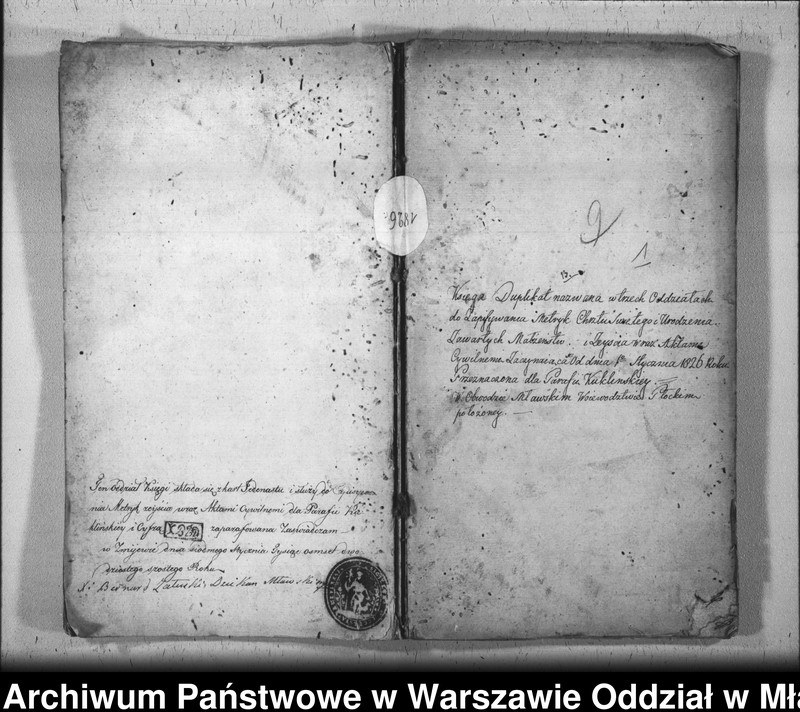 Ten oddział Księgi składa się z kart Jedenastu i służy do zpisywa
nia Metryk zejścia wraz Aktami Cywilnemi dla Parafii Ku
klińskiey i Cyfrą zaparafowana Zaświadczam
w Zmijewie dnia siódmego Stycznia Tysiąc osmset dwu
dziestego szostego Roku
X: Bernard Załuski Dziekan Mławski
1826
2
1
Księga Duplikat nazwana w trzech Oddziałach
do Zapisywania Metryk Chrztu Swiętego i Urodzenia.
Zawartych Małżenstw. i Zeyścia wraz Aktami
Cywilnemi Zaczynaiącą Od dnia 1o Stycznia 1826 Roku
Przeznaczona dla Parafii Kuklinskiey
w Obwodzie Mławskim Woiewodztwie Płockim
położoney.
Archiwum Państwowe w Warszawie Oddział w Mła